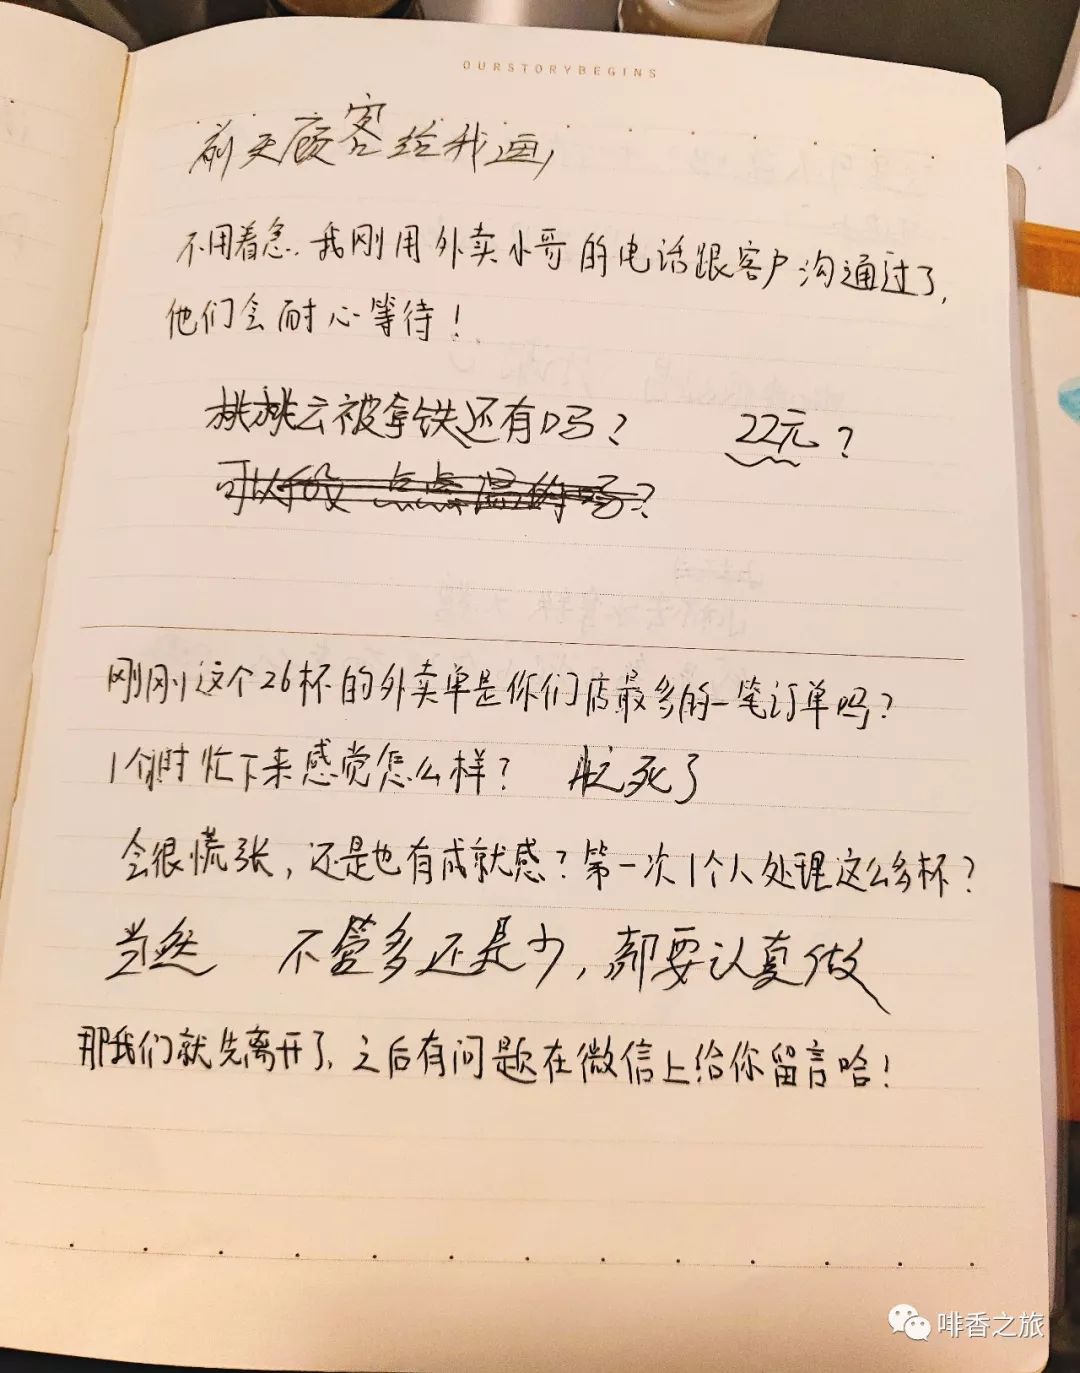 OURSTORYBEGINS
前天顾客给我画,
不用着急.我刚用外卖小哥的电话跟客户沟通过了,
他们会耐心等待!
桃桃云被拿铁还有吗? 22元?
可以 点点温的吗?
刚刚这个26杯的外卖单是你们店最多的一笔订单吗?
1个小时忙下来感觉怎么样? 死了
会很慌张,还是也有成就感?第一次1个人处理这么多杯?
当然 不管多还是少,都要认真做
那我们就先离开了,之后有问题在微信上给你留言哈!
啡香之旅